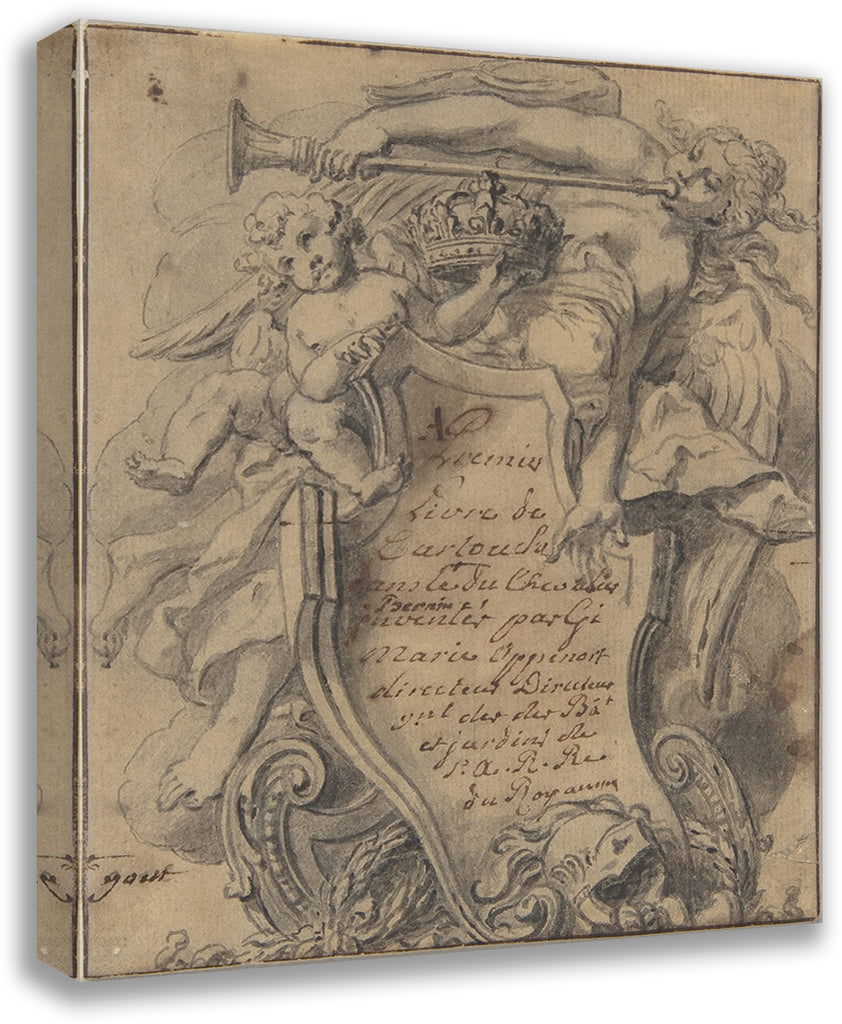 AP
Premier
Livre de
Cartouche
dans le du Chevalier
Bernin
inventés par Gi
Marie Oppenort
directeur Directeur
gnl des des Bât
et jardins de
S. A. R. Re
du Royaume
gout